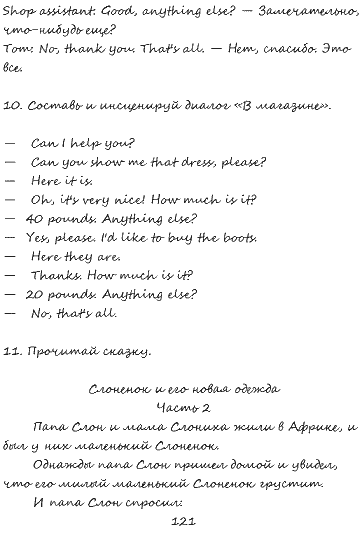 Shop assistant: Good, anything else? — Замечательно,
что-нибудь еще?
Tom: No, thank you. That's all. — Нет, спасибо. Это
все.
10. Составь и инсценируй диалог «В магазине».
— Can I help you?
— Can you show me that dress, please?
— Here it is.
— Oh, it's very nice! How much is it?
— 40 pounds. Anything else?
— Yes, please. I'd like to buy the boots.
— Here they are.
— Thanks. How much is it?
— 20 pounds. Anything else?
— No, that's all.
11. Прочитай сказку.
Слоненок и его новая одежда
Часть 2
Папа Слон и мама Слониха жили в Африке, и
был у них маленький Слоненок.
Однажды папа Слон пришел домой и увидел,
что его милый маленький Слоненок грустит.
И папа Слон спросил:
121